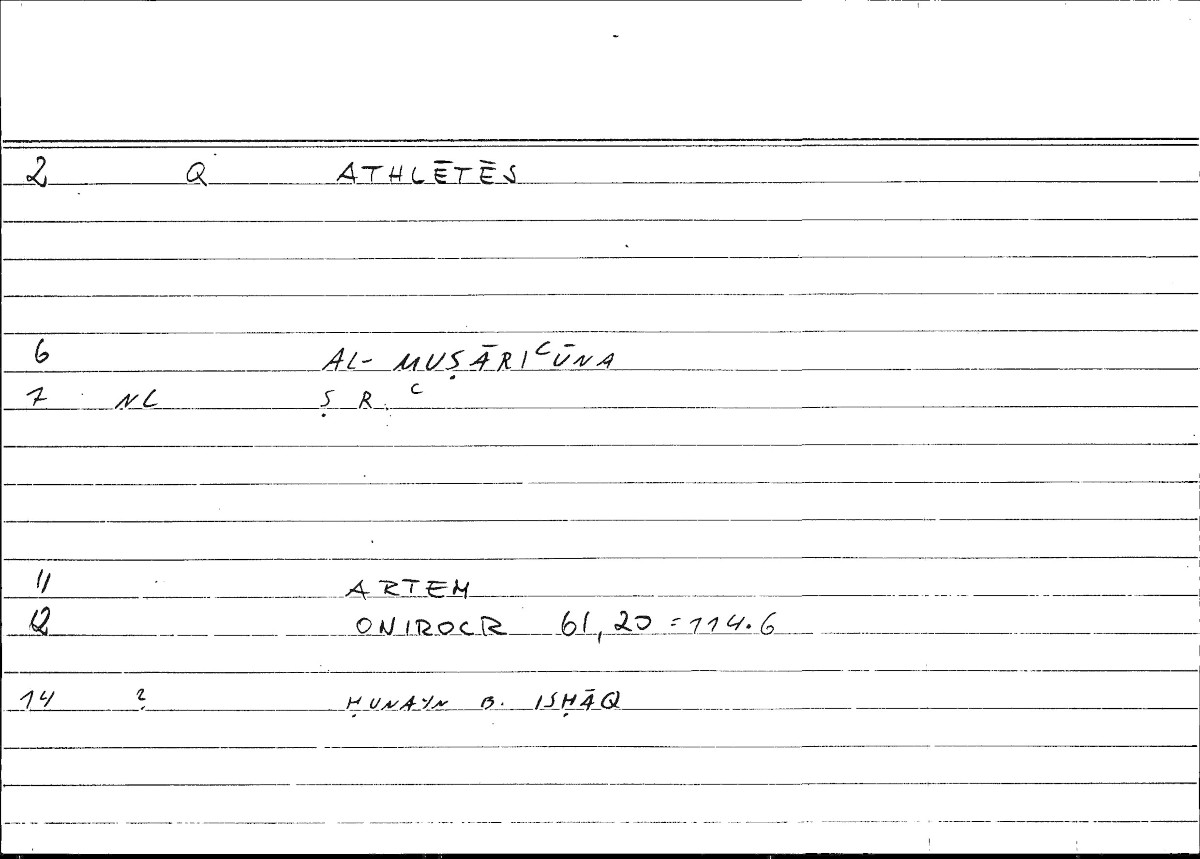 2 Q ATHLĒTĒS
6 AL- MUṢĀRIᶜŪNA
7 NL Ṣ R ᶜ
11 ARTEM
12 ONIROCR 61,20 = 114.6
14 ? ḤUNAYN B. ISḤĀQ